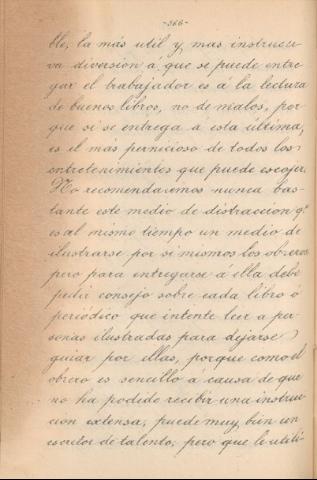 -366-
ble, la más util y mas instructi-
va diversion á que se puede entre
gar el trabajador es á la lectura
de buenos libros, no de malos, por
que si se entrega á esta última,
es el más pernicioso de todos los
entretenimientos que puede escojer.
No recomendaremos nunca bas-
tante este medio de distraccion q.e
es al mismo tiempo un medio de
ilustrarse por si mismos los obreros
pero para entregarse á ella debe
pedir consejo sobre cada libro ó
periódico que intente leer a per-
sonas ilustradas para dejarse
guiar por ellas, porque como el
obrero es sencillo á causa de que
no ha podido recibir una instruc-
cion extensa, puede muy bien un
escritor de talento, pero que le utili-